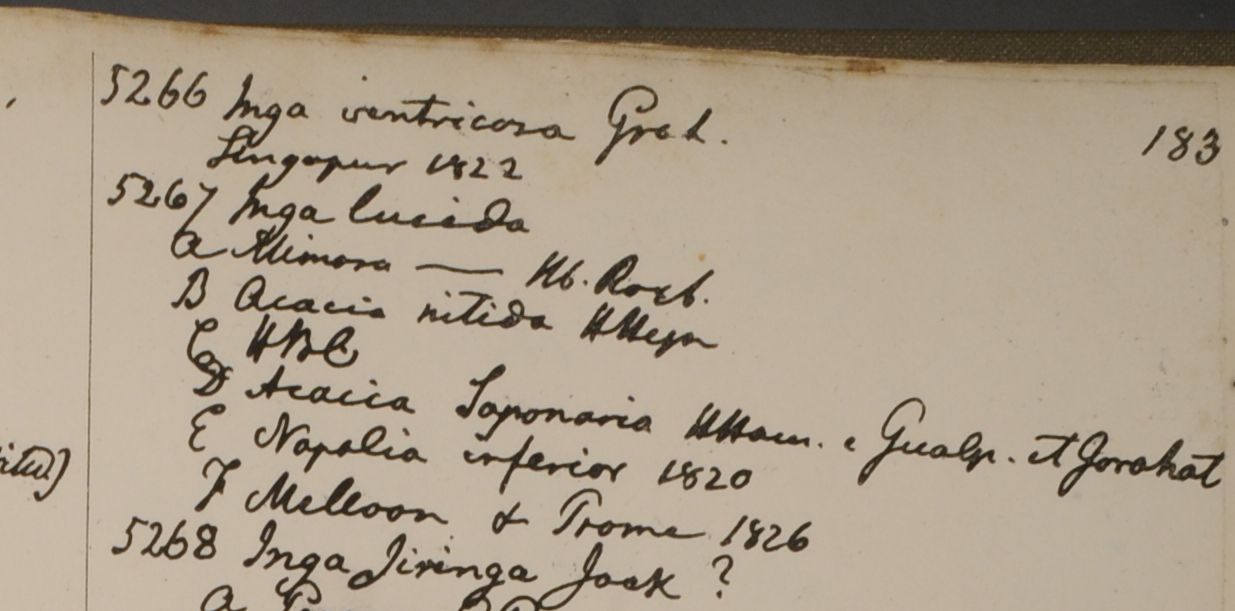 183
5266 Inga ventricosa Grah.
Singapur 1822
5267 Inga lucida
a Mimosa — Hb. Roxb.
B Acacia nitida HHeyn
C HBC
D Acacia Saponaria HHam. e Gualp. et Gorahat
E Napalia inferior 1820
F Melloon & Prome 1826
5268 Inga Jiringa Jack ?
a